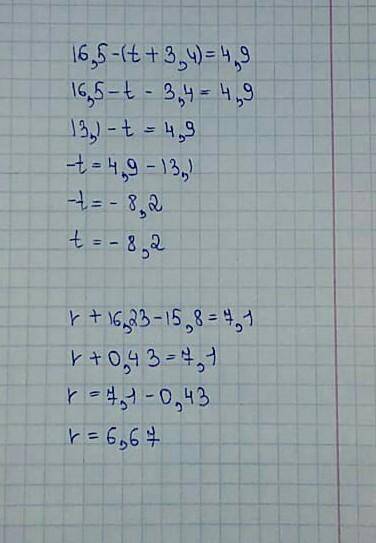 16,5-(t+3,4)=4,9
16,5-t-3,4=4,9
13,1-t=4,9
-t=4,9-13,1
-t=-8,2
t=-8,2
r+16,23-15,8=7,1
r+0,43=7,1
r=7,1-0,43
r=6,67